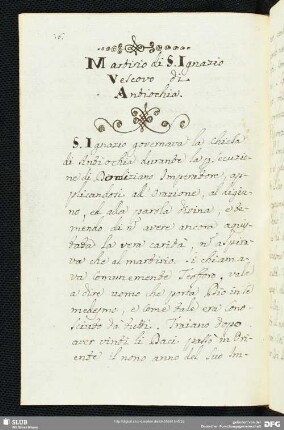 76.
Martirio di S. Ignazio
Vescovo di
Antiochia.
S. Ignazio governava la Chiesa
di Antiochia durante la
ne di Domiziano Imperatore, ap-
plicandosi all'Orazione, al digiu-
no, ed alla parola divina, e te-
mendo di n̄ avere ancora
la vera carità, n̄
va che al martirio. Si chiama
va comunemente Teoforo, vale
a dire uomo che porta Dio in se
medesmo, e come tale era cono-
sciuto da tutti. Traiano dopo
aver vinti li Daci passò in Ori-
ente il nono anno del suo Im-
SLUB
Wir führen Wissen.
gefördert von der
Deutschen Forschungsgemeinschaft
DFG